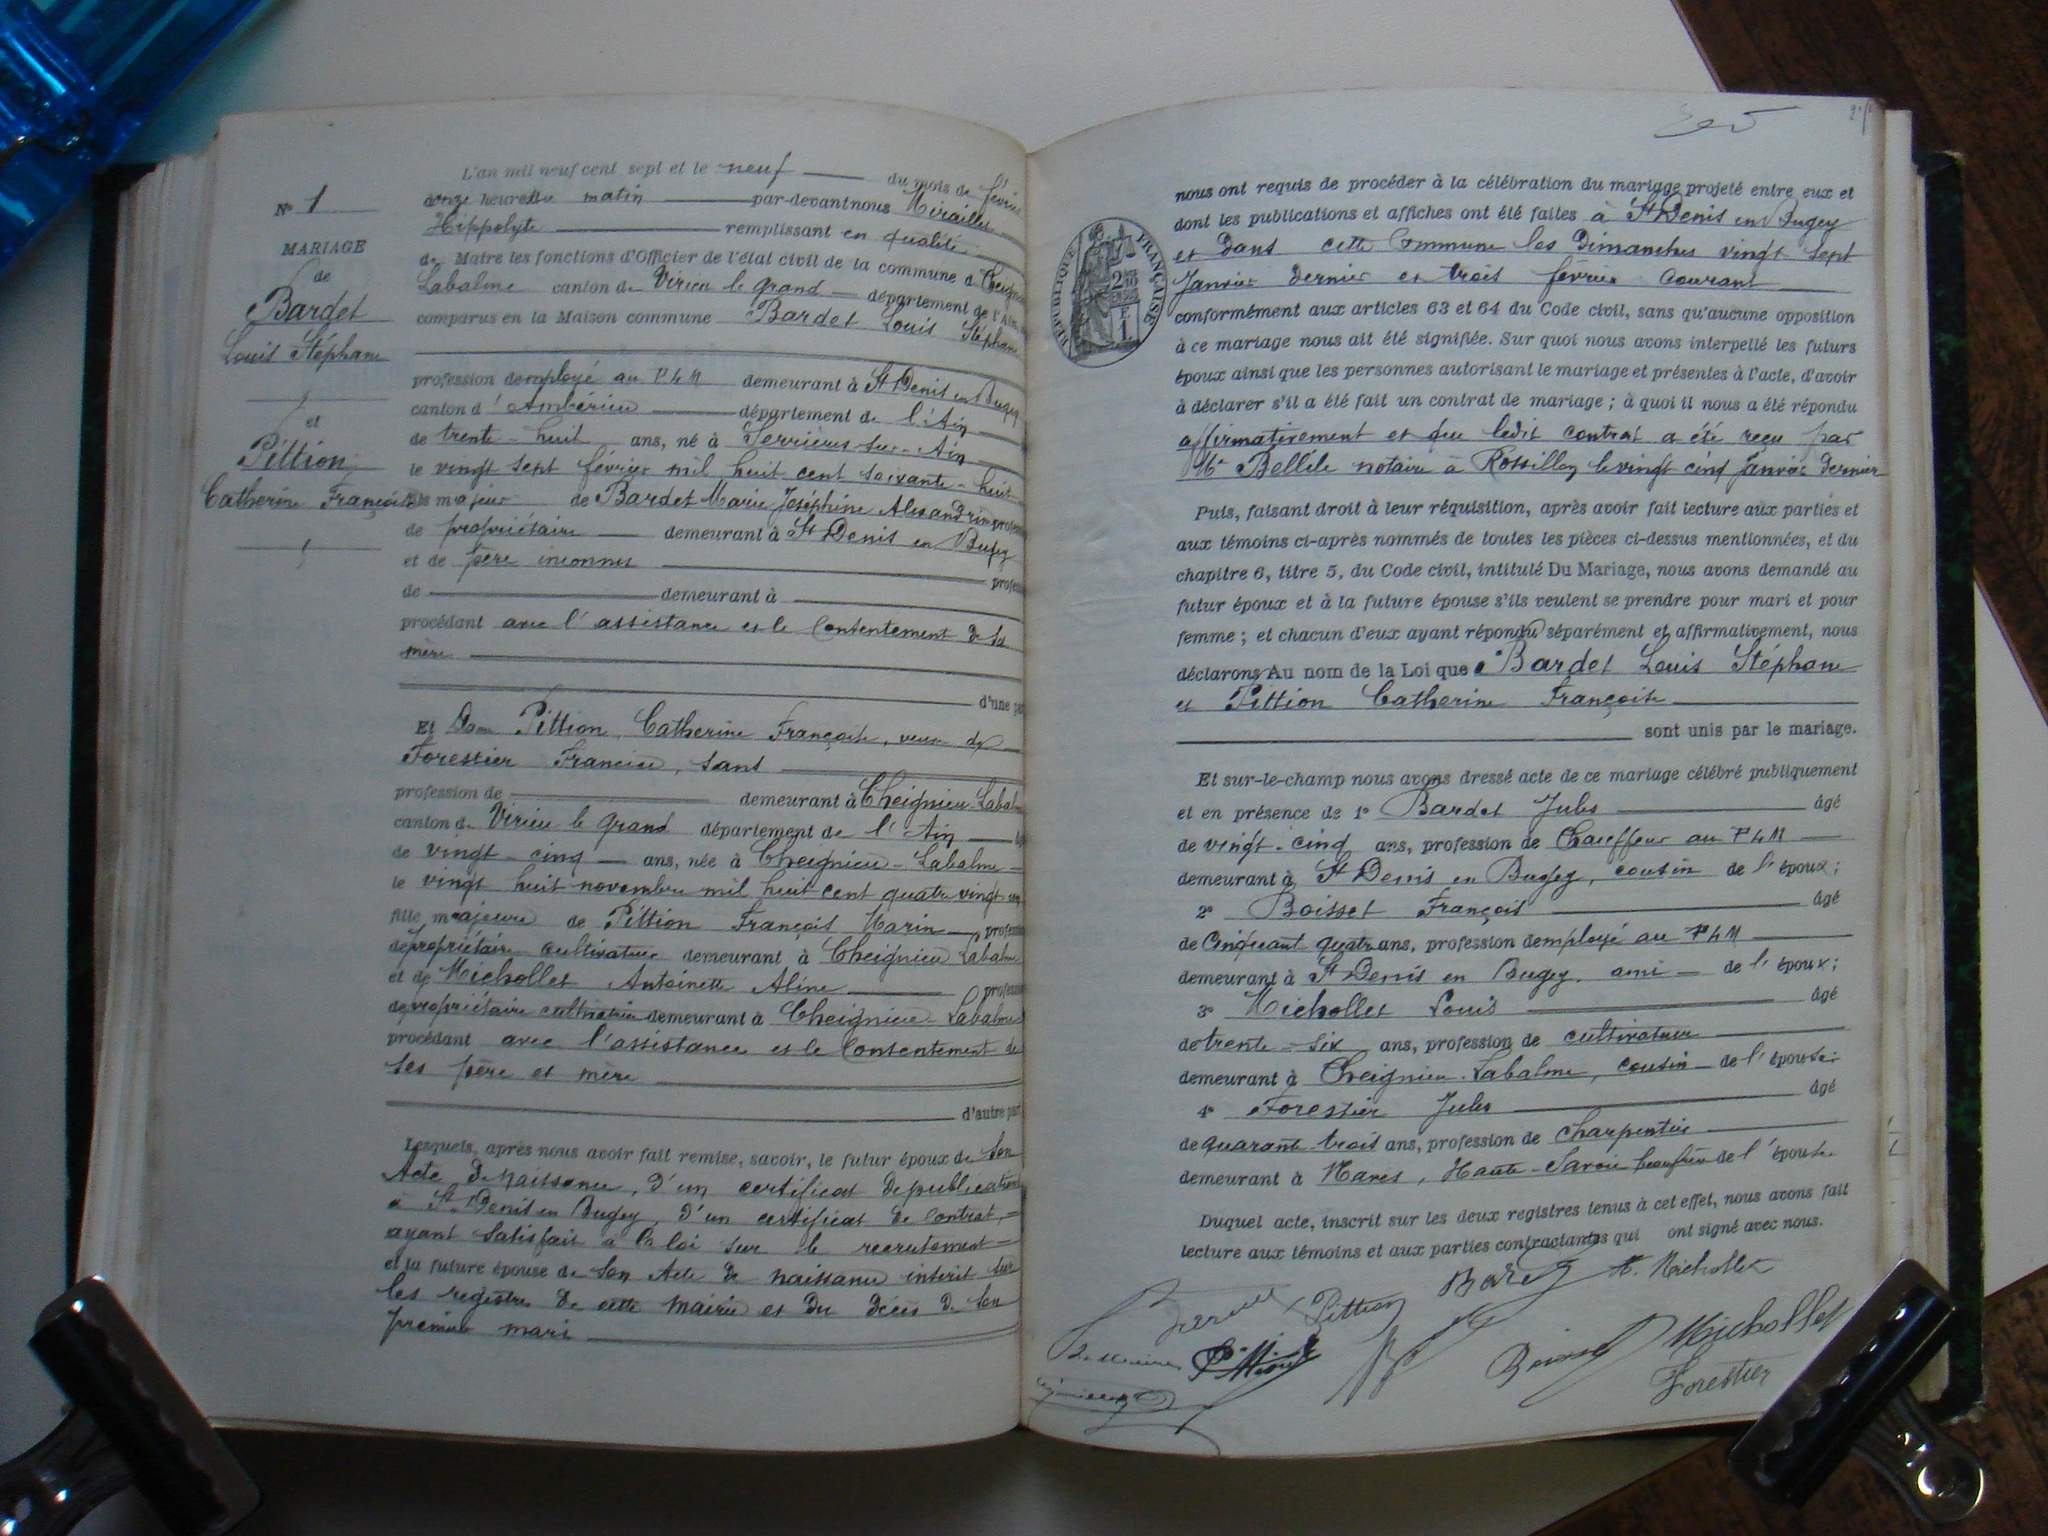 L'an mil neuf cent sept et le neuf du mois de février
onze heures du matin par-devant nous Miraillet
Hippolyte remplissant en qualité
de Maire les fonctions d'Officier de l'état civil de la commune de Cheignieu
Labalme canton de Virieu le grand département de l'Ain
comparus en la Maison commune Bardet Louis Stéphane
profession d'employé au PLM demeurant à St Denis en Bugey
canton d'Ambérieu département de l'Ain
de trente-huit ans, né à Serrières-sur-Ain
le vingt sept février mil huit cent soixante-huit
fils majeur de Bardet Marie Joséphine Alexandrine profession
de propriétaire demeurant à St Denis en Bugey
et de père inconnu profession
de demeurant à
procédant avec l'assistance et le Consentement de sa
mère
d'une part
Et Dame Pittion Catherine Françoise, veuve de
Forestier Francieu, sans
profession de demeurant à Cheignieu-Labalme
canton de Virieu le grand département de l'Ain
de vingt-cinq ans, née à Cheignieu-Labalme
le vingt huit novembre mil huit cent quatre vingt-un
fille majeure de Pittion François Marin profession
de propriétaire cultivateur demeurant à Cheignieu Labalme
et de Michollet Antoinette Aline profession
de propriétaire cultivatrice demeurant à Cheignieu-Labalme
procédant avec l'assistance et le Consentement de
ses père et mère
d'autre part
Lesquels, après nous avoir fait remise, savoir, le futur époux de son
Acte de Naissance, d'un certificat de publication
à St Denis en Bugey, d'un certificat de Contrat,
ayant satisfait à la loi sur le recrutement
et la future épouse de son Acte de naissance inscrit sur
les registres de cette Mairie et du décès de son
premier mari
N° 1
MARIAGE
de
Bardet
Louis Stéphane
et
Pittion
Catherine Françoise
nous ont requis de procéder à la célébration du mariage projeté entre eux et
dont les publications et affiches ont été faites à St Denis en Bugey
et dans cette Commune les Dimanches vingt sept
Janvier dernier et trois février courant
conformément aux articles 63 et 64 du Code civil, sans qu'aucune opposition
à ce mariage nous ait été signifiée. Sur quoi nous avons interpellé les futurs
époux ainsi que les personnes autorisant le mariage et présentes à l'acte, d'avoir
à déclarer s'il a été fait un contrat de mariage ; à quoi il nous a été répondu
affirmativement et que ledit contrat a été reçu par
Me Bellile notaire à Rossillon le vingt cinq Janvier dernier
Puis, faisant droit à leur réquisition, après avoir fait lecture aux parties et
aux témoins ci-après nommés de toutes les pièces ci-dessus mentionnées, et du
chapitre 6, titre 5, du Code civil, intitulé Du Mariage, nous avons demandé au
futur époux et à la future épouse s'ils veulent se prendre pour mari et pour
femme ; et chacun d'eux ayant répondu séparément et affirmativement, nous
déclarons Au nom de la Loi que Bardet Louis Stéphane
et Pittion Catherine Françoise
sont unis par le mariage.
Et sur-le-champ nous avons dressé acte de ce mariage célébré publiquement
et en présence de 1° Bardet Jules âgé
de vingt-cinq ans, profession de Chauffeur au PLM
demeurant à St Denis en Bugey, cousin de l'époux ;
2° Boisset François âgé
de Cinquante quatre ans, profession d'employé au PLM
demeurant à St Denis en Bugey, ami de l'époux ;
3° Michollet Louis âgé
de trente-six ans, profession de cultivateur
demeurant à Cheignieu-Labalme, cousin de l'épouse
4° Forestier Jules âgé
de quarante-trois ans, profession de charpentier
demeurant à Mares, Haute-Savoie beaufrère de l'épouse
Duquel acte, inscrit sur les deux registres tenus à cet effet, nous avons fait
lecture aux témoins et aux parties contractantes qui ont signé avec nous.
Bardet M. Michollet
Pittion
Michollet
Boisset
Forestier
RÉPUBLIQUE FRANÇAISE